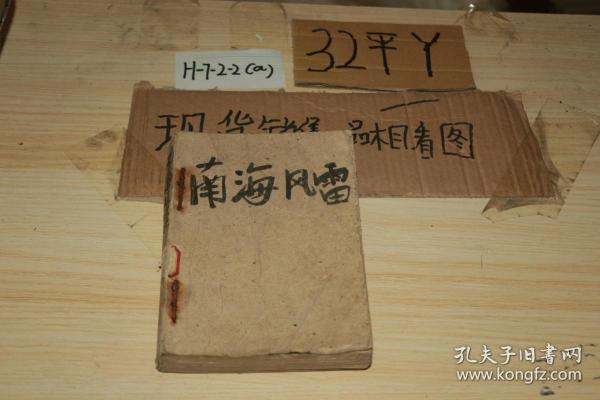 32平丫
H-7-2-2(a)
现货销售 一品相看图
南海风雷
孔夫子旧书网
www.kongfz.com